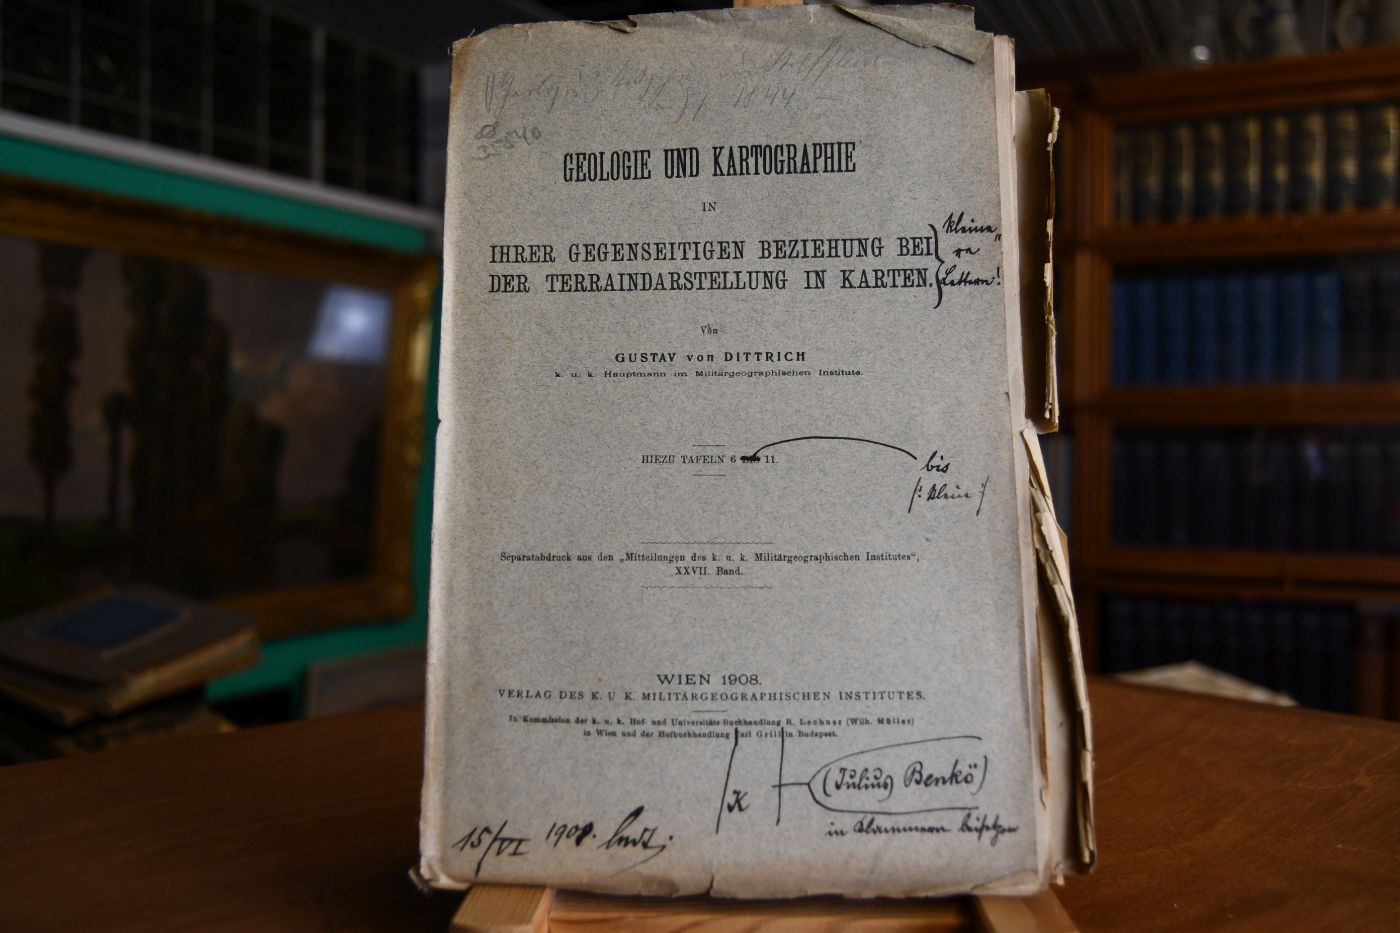 1844
2540
GEOLOGIE UND KARTOGRAPHIE
IN
IHRER GEGENSEITIGEN BEZIEHUNG BEI
DER TERRAINDARSTELLUNG IN KARTEN.
kleine
re
Lettern!
Von
GUSTAV von DITTRICH
k. u. k. Hauptmann im Militärgeographischen Institute.
HIEZU TAFELN 6 bis 11.
bis
(: klein :)
Separatabdruck aus den „Mitteilungen des k. u. k. Militärgeographischen Institutes“,
XXVII. Band.
WIEN 1908.
VERLAG DES K. U K. MILITÄRGEOGRAPHISCHEN INSTITUTES.
In Kommission der k. u. k. Hof- und Universitäts-Buchhandlung R. Lechner (Wilh. Müller)
in Wien und der Hofbuchhandlung Carl Grill in Budapest.
K
(Julius Benkö)
in Klammern beisetzen
15/VI 1908.